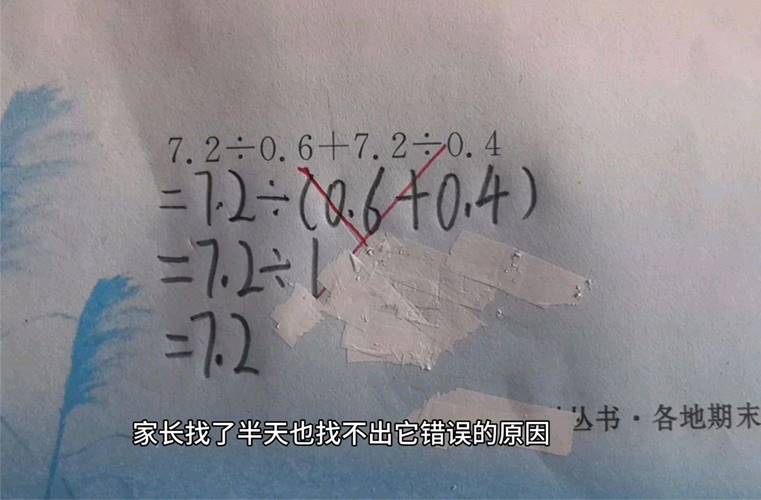 7.2÷0.6+7.2÷0.4
=7.2÷(0.6+0.4)
=7.2÷1
=7.2
丛书·各地期末
家长找了半天也找不出它错误的原因